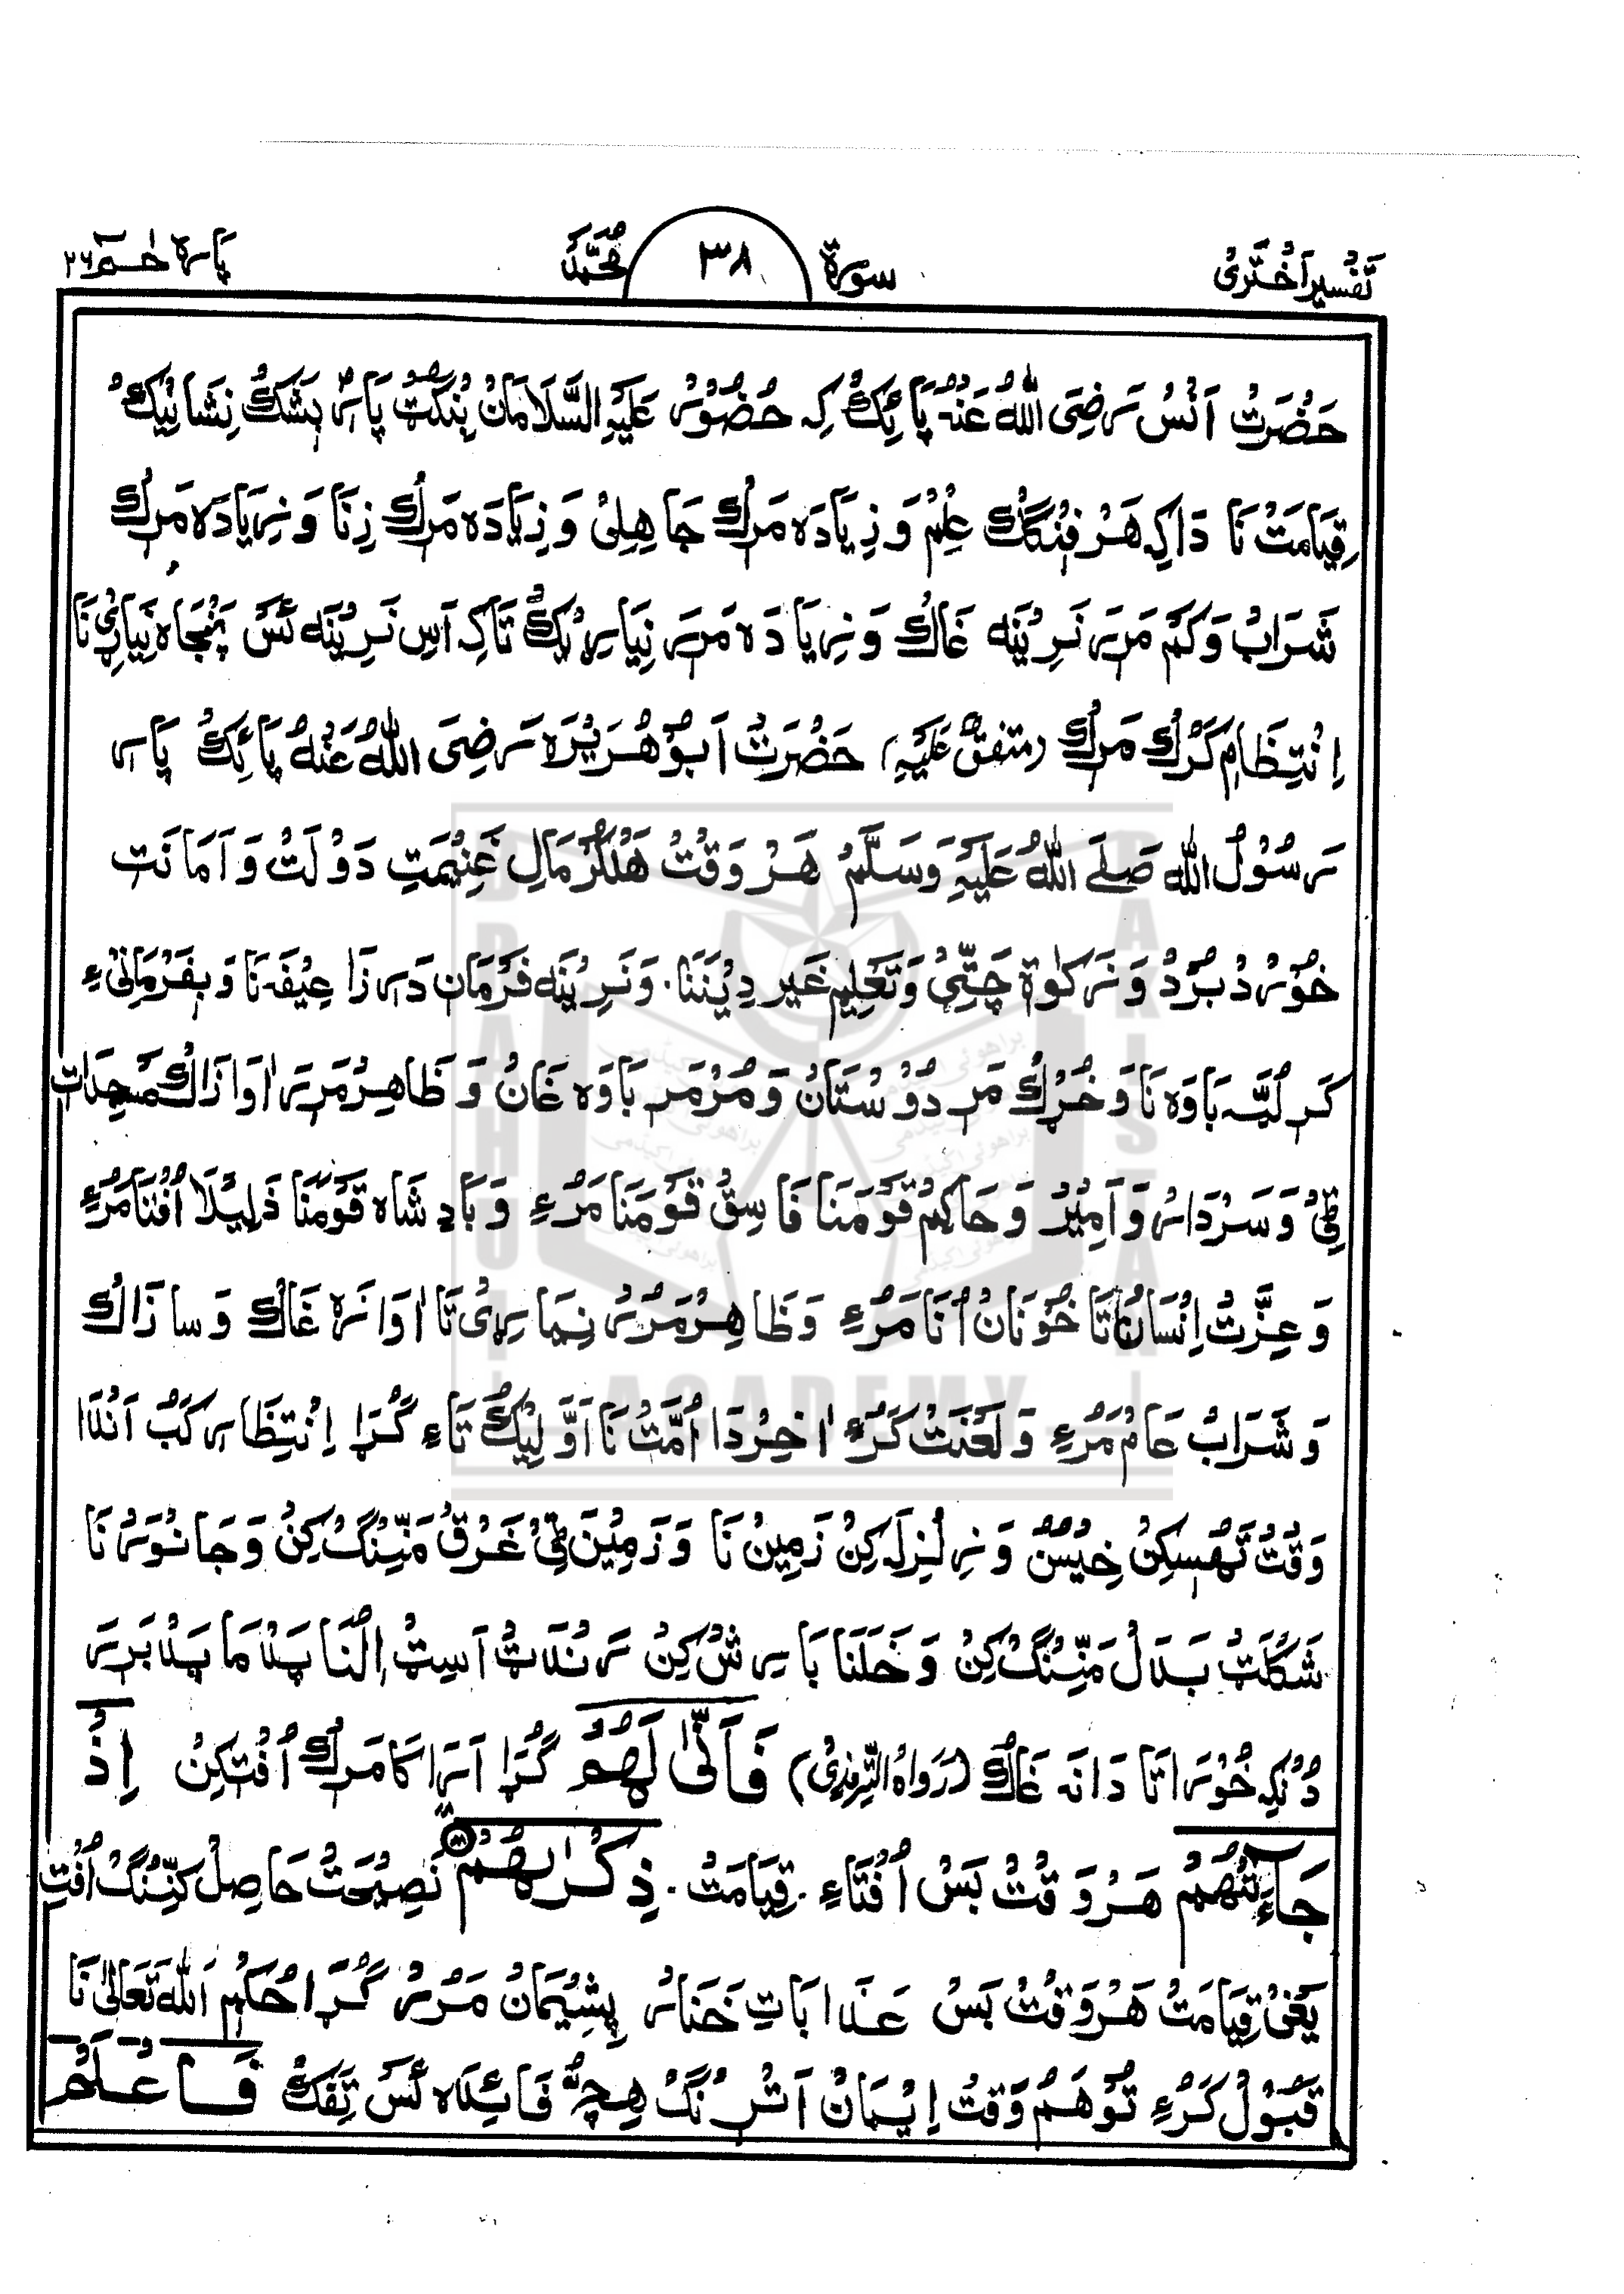 تَفسِیر اَختَرِیُ سورة ۳۸ مُحَمَّدُ پاره حٰمٓ ۲۶
حَضْرَتْ اَنَسْ رَضِیَ اللّٰهُ عَنْهُ پَائِکْ کِہ حُضُوْر عَلَیْہِ السَّلَامَانْ بِنگُٹ پَارے بَیشَکْ نِشَانِیکْ
قِیَامَتْ نَا دَاکِہ هَرْفِنْگکْ عِلِمْ وَ زِیَادَه مَرکْ جَاهِلِیْ وَ زِیَادَه مَرکْ زِنَا وَ زِیَادَہ مَرکْ
شَرَابْ وَ کَمْ مَرے نَرِیْنَہ غَاکْ وَ زِیَادَه مَرے نِیَارِیکْ تَاکِہ اَسِ نَرِیْنَہ ئَسْ پَنْجَاه نِیَارِیْ نَا
اِنْتِظَام کَرکْ مَرکْ (متفقٌ عَلَیْہِ) حَضْرَتْ اَبُوْهُرَیْرَہ رَضِیَ اللّٰهُ عَنْهُ پَائِکْ پَارے
رَسُوْلُ اللّٰه صَلَے اللّٰهُ عَلَیْہِ وَسَلَّمْ هَرْ وَقْتْ هَلکُرْ مَالِ غَنِیْمَتِ دَوْلَتْ وَ اَمَانَت
خُوْرْدُ بُرْدْ وَ زَکوٰة چَٹِّیْ وَ تَعْلِیْم غَیر دِیْنَنَا. وَ نَرِیْنَہ فَرْمَان دَرزَا عِیْفَہ نَا وَ بِفَرْمَانِیْ ءِ
کَر لُیَّہ بَاوَہ نَا وَ خُڑْکْ مَر دُوْسْتَانْ وَ مُرْمَر بَاوَه غَانْ وَ ظَاهِرْمَرے اٰوَازَاکْ مَسْجِدَات
ٹِیْ وَ سَرْدَارْ وَ اَمِیْرْ وَ حَاکِمْ قَوْمَنَا فَاسِقْ قَوْمَنَا مَرْءِ وَ بَادِشَاه قَوْمَنَا ذَلِیْلَا اُفْتَا مَرْءِ
وَ عِزَّتْ اِنْسَانْ تَا خُوْنَانْ اُنَا مَرْءِ وَ ظَاهِرْ مَرْرْ نِیمَارِیْ تَا اٰوَازَہ غَاکْ وَ سَازَاکْ
وَ شَرَابْ عَامْ مَرْءِ وَ لَعْنَتْ کَرْءِ اٰخِرْدَا اُمَّتْ نَا اَوَّلِیْکْ تَاءِ گُڑَا اِنْتِظَار کَبْ اَنْدَا
وَقْتْ تَهْسِکِنْ خِیْسُنْ وَ زِلْزِلَہ کِنْ زَمِیْن نَا وَ زَمِیْنَ ٹِیْ غَرْقْ مَنِّنْگْ کِنْ وَ جَانْوَرْ نَا
شَکْلَٹْ بَدَلْ مَنِّنْگْ کِنْ وَ خَلَنَا بَارِشْ کِنْ رَنْدَٹْ اَسِٹْ اِلْنَا پَدْ مَا پَدْ بَرے
دُنْکِہ خُوْرَاتَا دَانَہ غَاکْ (رَوَاهُ التِّرمِذِیْ) فَاَنّٰى لَهُمْ گُڑَا اَرَا کَا مَرکْ اُفْتِکِنْ اِذَ
جَآءَتْهُمْ هَرْوَقْتْ بَسْ اُفْتَاءِ. قِیَامَتْ. ذِکْرٰىهُمْ ﴿۱۸﴾ نَصِیْحَتْ حَاصِلْ کَنِّنْگْ اُفْتِ
یَعْنیْ قِیَامَتْ هَرْوَقْتْ بَسْ عَذَابَاتِ خَنَارْ پِشِیْمَانْ مَرْرْ گُڑَا حُکْم اَللّٰه تَعَالٰیْ نَا
قَبُوْلْ کَرْءِ تُوْ هَمْ وَقْتْ اِیْمَانْ اَتْرنگْ هِچّْ فَائِدَه ئَسْ تِفَکْ فَاعْلَمْ